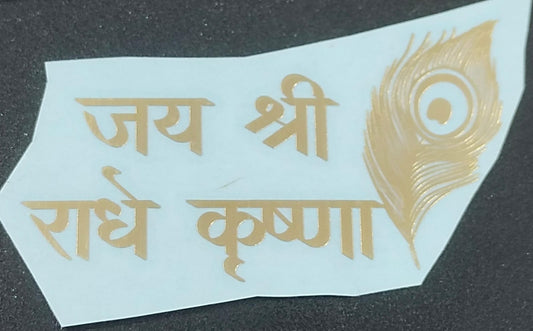 जय श्री
राधे कृष्णा